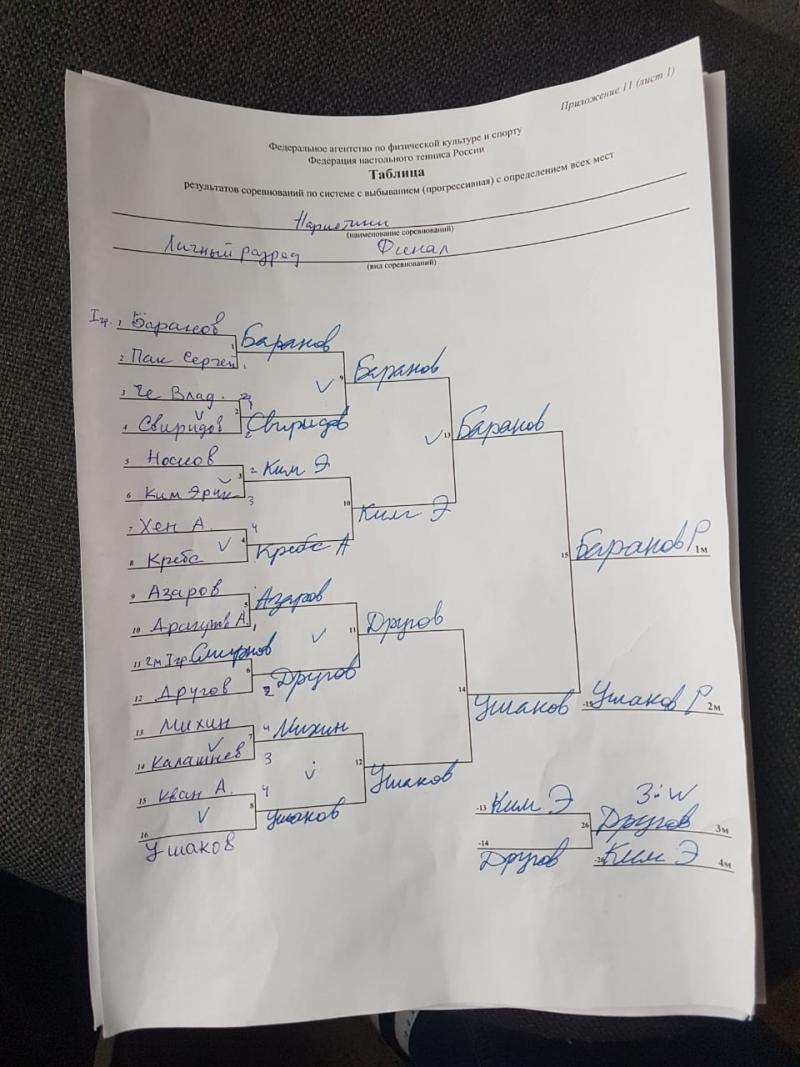 Приложение 11 (лист 1)
Федеральное агентство по физической культуре и спорту
Федерация настольного тенниса России
Таблица
результатов соревнований по системе с выбыванием (прогрессивная) с определением всех мест
(наименование соревнований)
Личный разряд Финал
(вид соревнований)
1 Баранов
2 Пак Сергей
3 Че Влад.
4 Свиридов
5 Носков
6 Ким Эрик
7 Хен А.
8 Кребс
9 Азаров
10 А.
11 Смирнов
12 Другов
13 Михин
14
15 Кван А.
16 Ушаков
1 Баранов
2 Свиридов
3 Ким Э
4 Кребс А
5 Азаров
6 Другов
7 Михин
8 Ушаков
9 Баранов
10 Ким Э
11 Другов
12 Ушаков
13 Баранов
14 Ушаков
15 Баранов Р 1м
-15 Ушаков Р 2м
-13 Ким Э
-14 Другов
3:W
26 Другов 3м
-26 Ким Э 4м